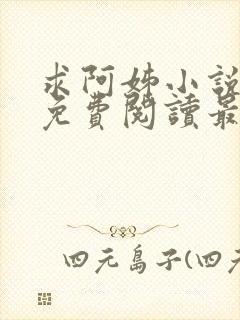 求阿姊小說
免費閱讀最
四元島子(四元